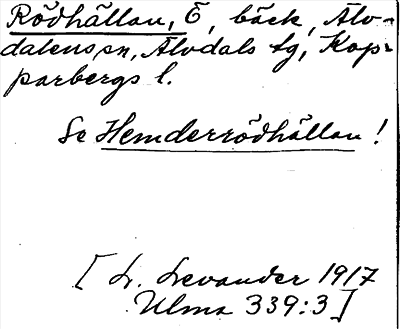 Rödhällan, Ö, bäck, Älv-
dalens sn, Älvdals tg, Kop-
parbergs l.
Se Hemderrödhällan!
[L. Levander 1917
Ulma 339:3]